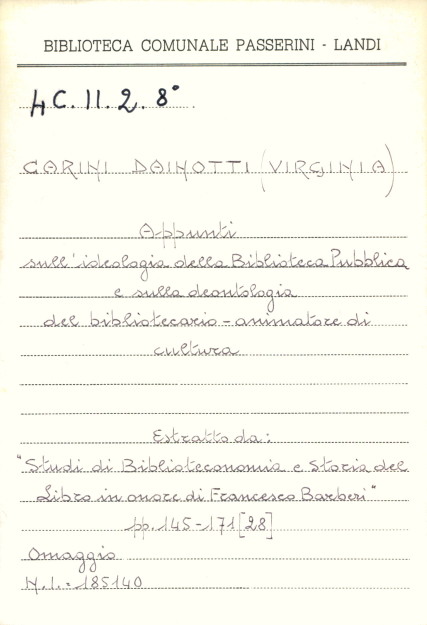 BIBLIOTECA COMUNALE PASSERINI - LANDI
4C. II. 2. 8°
CARINI DAINOTTI (VIRGINIA)
Appunti
sull'ideologia della Biblioteca Pubblica
e sulla deontologia
del bibliotecario - animatore di
cultura
Estratto da:
"Studi di Biblioteconomia e Storia del
Libro in onore di Francesco Barberi"
pp. 145-171 [28]
Omaggio
N.I. = 185140